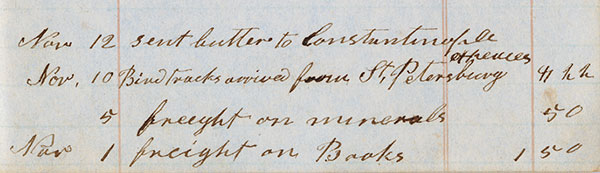 Nov 12 sent butter to Constantinople
expences
Nov. 10 Bird tracks arived from St. Petersburg 41 44
5 freight on minerals 50
Nov 1 freight on Books 1 50